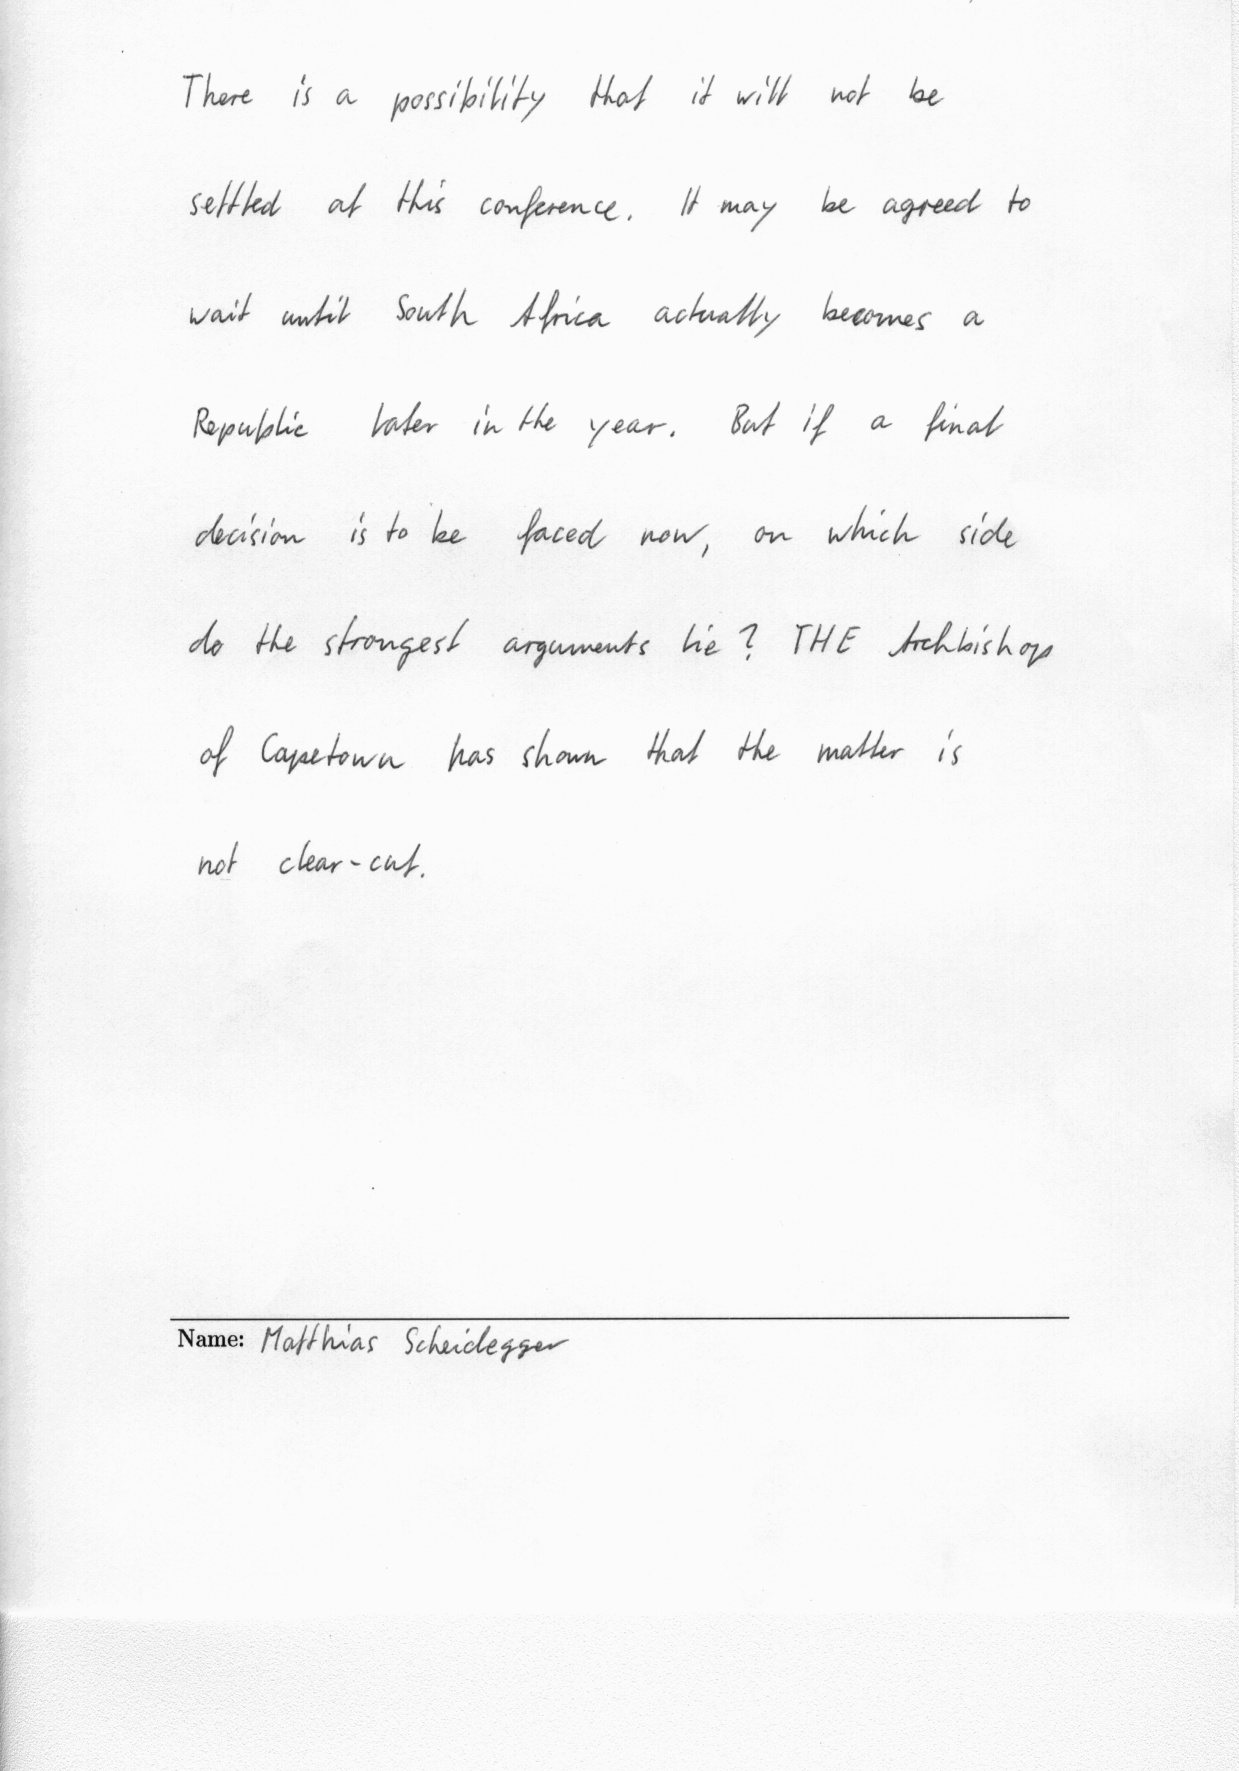 There is a possibility that it will not be
settled at this conference. It may be agreed to
wait until South Africa actually becomes a
Republic later in the year. But if a final
decision is to be faced now, on which side
do the strongest arguments lie? THE Archbishop
of Capetown has shown that the matter is
not clear-cut.
Name: Matthias Scheidegger